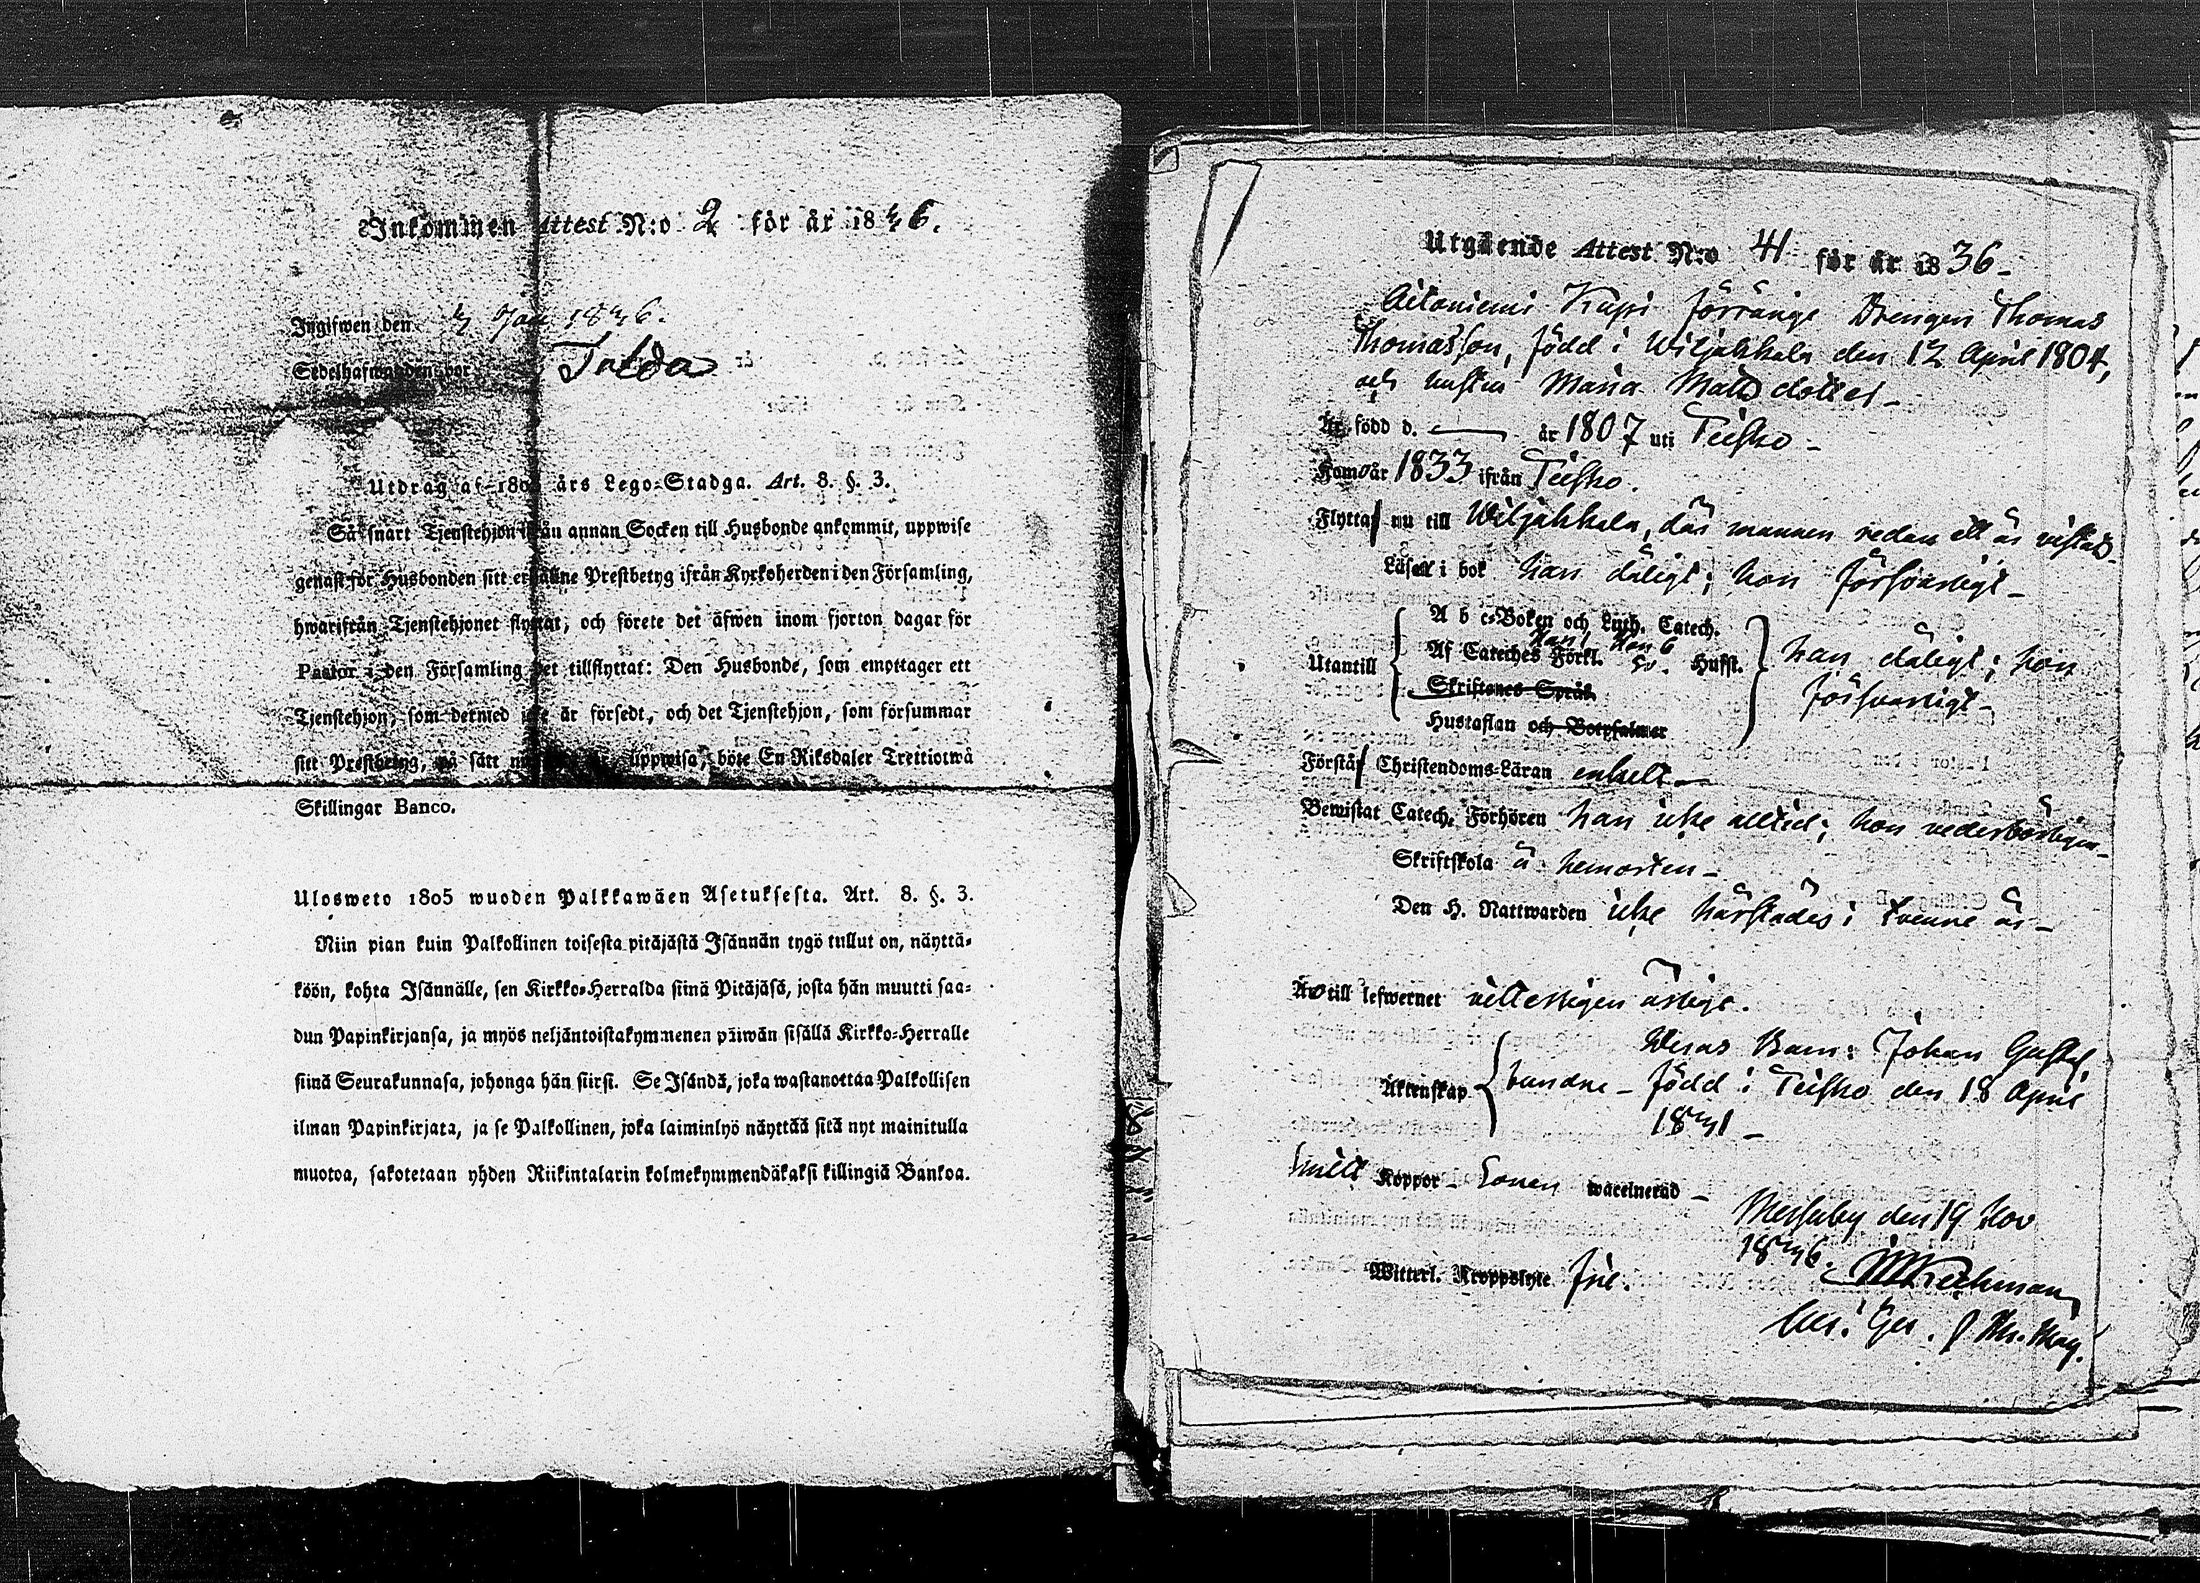 Inkommen Attest N:o 2 för år 1836.
Ingifwen den 4 Jan 1836.
Sedelhafwanden bor Talda
Utdrag af 1805 års Lego-Stadga. Art. 8. §. 3.
Så snart Tjenstehjon ifrån annan Socken till Husbonde ankommit, uppwise
genast för Husbonden sitt erhållne Prestbetyg ifrån Kyrkoherden i den Församling,
hwarifrån Tjenstehjonet flyttat, och förete det äfwen inom fjorton dagar för
Pastor i den Församling det tillflyttat: Den Husbonde, som emottager ett
Tjenstehjon, som dermed icke är försedt, och det Tjenstehjon, som försummar
sitt Prestbetyg, på sätt uppwisa, böte En Riksdaler Trettiotwå
Skillingar Banco.
Ulosweto 1805 wuoden Palkkawäen Asetuksesta. Art. 8. §. 3.
Niin pian kuin Palkollinen toisesta pitäjästä Isännän tygö tullut on, näyttä-
köön, kohta Isännälle, sen Kirkko-Herralda siinä Pitäjäsä, josta hän muutti saa-
dun Papinkirjansa, ja myös neljäntoistakymmenen päiwän sisällä Kirkko-Herralle
siinä Seurakunnasa, johonga hän siirsi. Se Isändä, joka wastanottaa Palkollisen
ilman Papinkirjata, ja se Palkollinen, joka laiminlyö näyttää sitä nyt mainitulla
muotoa, sakotetaan yhden Riikintalarin kolmekymmendäkaksi killingiä Bankoa.
Utgående Attest N:o 41 för år 1836-
Aitoniemi Kapi förränige Drengen Thomas
Thomasson, född i Wiljakkala den 12 April 1804,
och hustru Maria Matts dotter-
Är född d. — år 1807 uti Teisko-
Kom år 1833 ifrån Teisko.
Flytta nu till Wiljakkala, där mannen redan ett år vistats
Läser i bok han dåligt; hon försvarligt-
A b c-Boken och Luth. Catech.
Han 1 Hon 6
Utantill Af Cateches Förkl. Hufst. han dåligt; hon
Skriftenes Språk försvarligt-
Hustaflan och Botpsalmer
Förstå Christendoms-Läran enkelt-
Bewistat Catech. Förhören han icke alltid; hon vederbörligen-
Skriftskola å hemorten-
Den H. Nattwarden icke härstädes i tvenne år-
Är till lefwernet ärligt.
Deras Barn: Johan Gustaf,
Äktenskap bundne- född i Teisko den 18 April
1831-
haft Koppor- Sonen waccinerad-
Messuby den 19 Nov
1836.
Witterl. Kroppslyte frie.